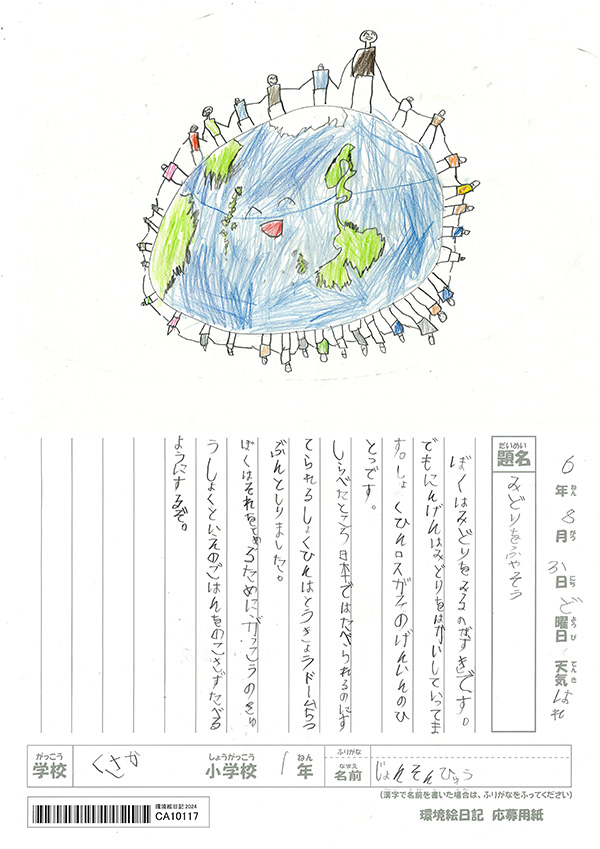 6年ねん8月がつ31日にちど曜日ようび天気てんきはれ
だいめい
題名
みどりをふやそう
ぼくはみどりをみるのがすきです。
でもにんげんはみどりをはかいしていってま
す。しょくひんロスがそのげんいんのひ
とつです。
しらべたところ日本ではたべられるのにす
てられるしょくひんはとうきょうドーム5つ
ぶんとしりました。
ぼくはそれをとめるためにがっこうのきゅ
うしょくといえのごはんをのこさずたべる
ようにするぞ。
がっこう
学校
くさか
しょうがっこう
小学校
1
ねん
年
ふりがな
なまえ
名前
じょんそんひゅう
(漢字で名前を書いた場合は、ふりがなをふってください)
環境絵日記2024
CA10117
環境絵日記 応募用紙